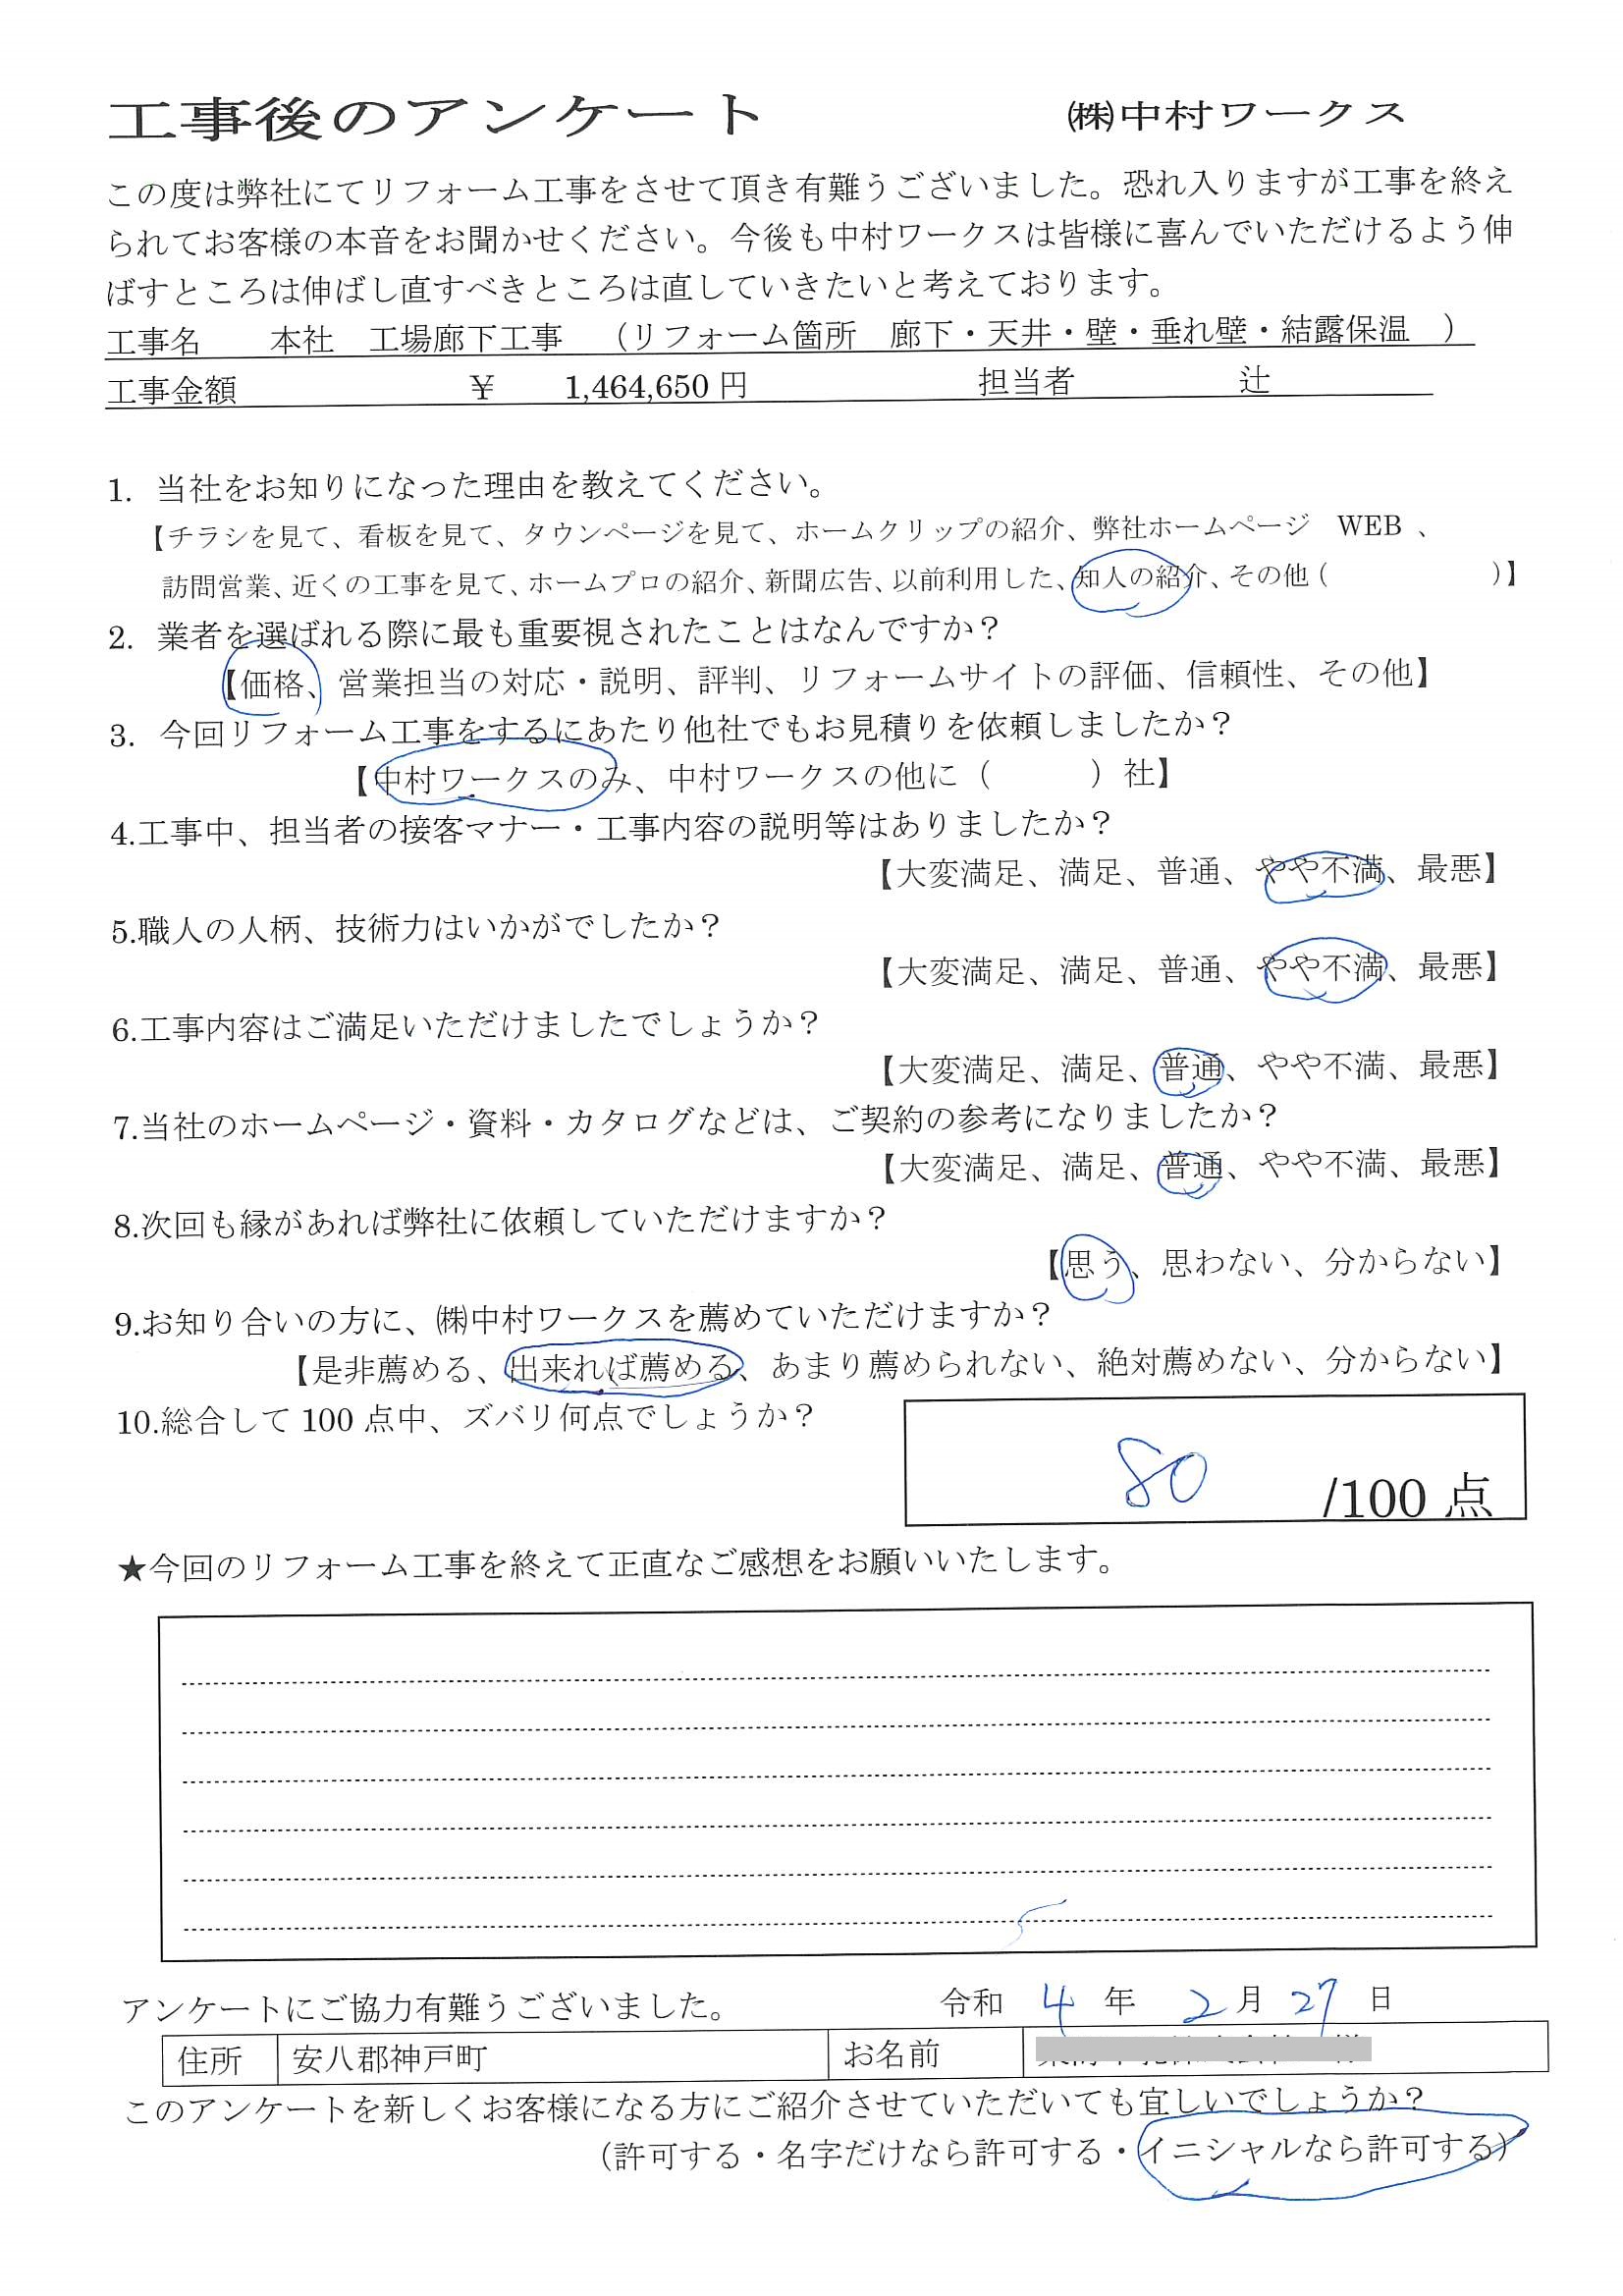 工事後のアンケート ㈱中村ワークス
この度は弊社にてリフォーム工事をさせて頂き有難うございました。恐れ入りますが工事を終え
られてお客様の本音をお聞かせください。今後も中村ワークスは皆様に喜んでいただけるよう伸
ばすところは伸ばし直すべきところは直していきたいと考えております。
工事名 本社 工場廊下工事 （リフォーム箇所 廊下・天井・壁・垂れ壁・結露保温 ）
工事金額 ￥ 1,464,650 円 担当者 辻
1. 当社をお知りになった理由を教えてください。
【チラシを見て、看板を見て、タウンページを見て、ホームクリップの紹介、弊社ホームページ WEB 、
訪問営業、近くの工事を見て、ホームプロの紹介、新聞広告、以前利用した、知人の紹介、その他（ ）】
2. 業者を選ばれる際に最も重要視されたことはなんですか？
【価格、営業担当の対応・説明、評判、リフォームサイトの評価、信頼性、その他】
3. 今回リフォーム工事をするにあたり他社でもお見積りを依頼しましたか？
【中村ワークスのみ、中村ワークスの他に（ ）社】
4.工事中、担当者の接客マナー・工事内容の説明等はありましたか？
【大変満足、満足、普通、やや不満、最悪】
5.職人の人柄、技術力はいかがでしたか？
【大変満足、満足、普通、やや不満、最悪】
6.工事内容はご満足いただけましたでしょうか？
【大変満足、満足、普通、やや不満、最悪】
7.当社のホームページ・資料・カタログなどは、ご契約の参考になりましたか？
【大変満足、満足、普通、やや不満、最悪】
8.次回も縁があれば弊社に依頼していただけますか？
【思う、思わない、分からない】
9.お知り合いの方に、㈱中村ワークスを薦めていただけますか？
【是非薦める、出来れば薦める、あまり薦められない、絶対薦めない、分からない】
10.総合して 100 点中、ズバリ何点でしょうか？
80 /100 点
★今回のリフォーム工事を終えて正直なご感想をお願いいたします。
アンケートにご協力有難うございました。 令和 4 年 2 月 27 日
住所 安八郡神戸町 お名前
このアンケートを新しくお客様になる方にご紹介させていただいても宜しいでしょうか？
（許可する・名字だけなら許可する・イニシャルなら許可する）